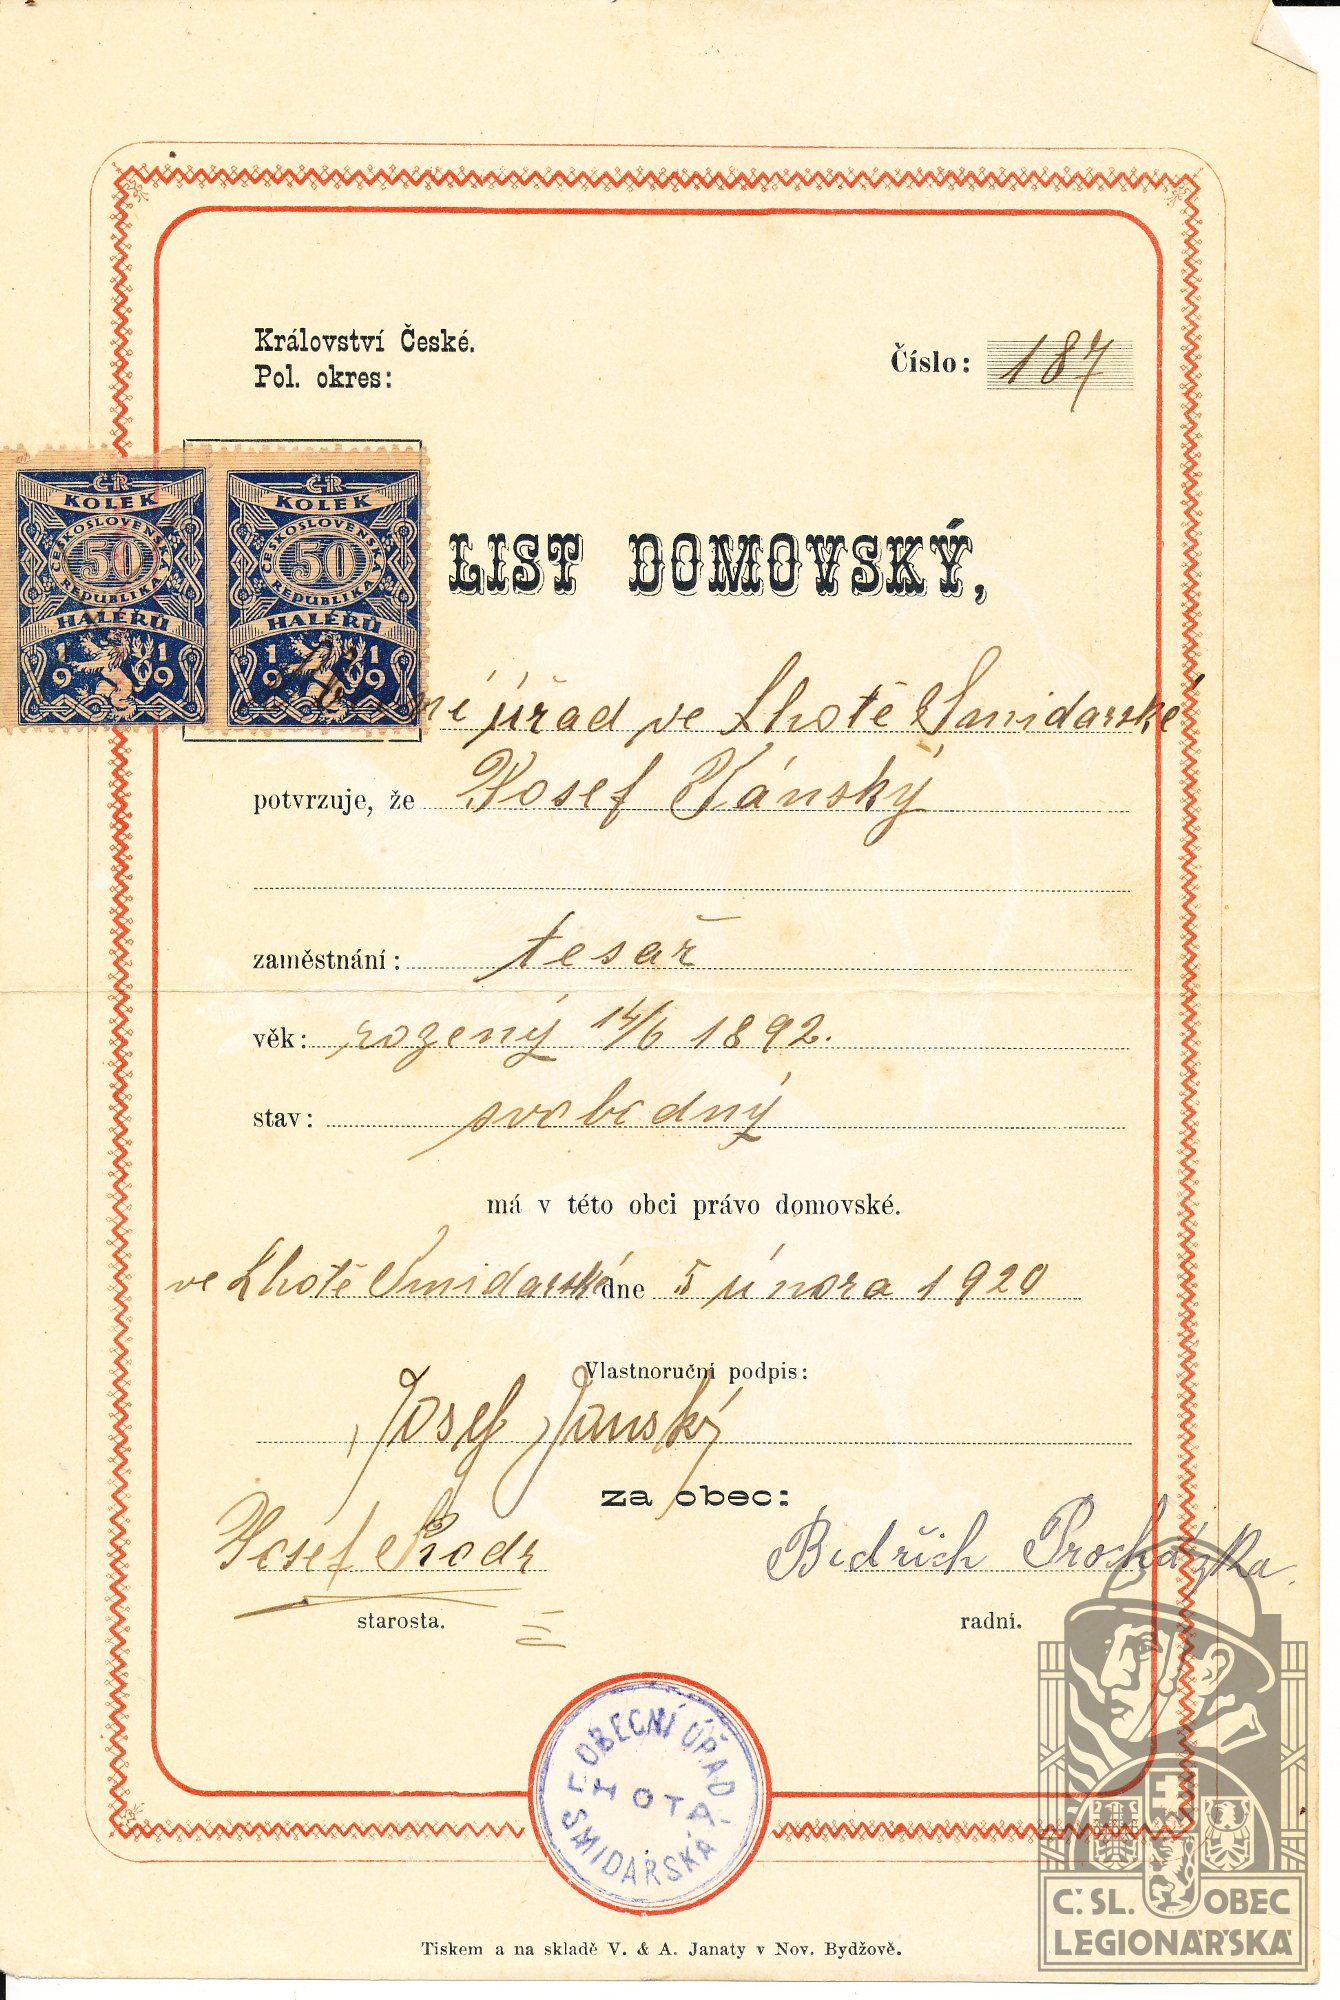 Království České.
Pol. okres:
Číslo: 187
ČR
KOLEK
ČESKOSLOVENSKÁ
50
REPUBLIKA
HALÉŘŮ
1919
ČR
KOLEK
ČESKOSLOVENSKÁ
50
REPUBLIKA
HALÉŘŮ
1919
LIST DOMOVSKÝ,
úřad ve Lhotě Smidarské
potvrzuje, že Josef Jánský
zaměstnání: tesař
věk: rozený 14/6 1892.
stav: svobodný
má v této obci právo domovské.
ve Lhotě Smidarské dne 5 února 1920
Vlastnoruční podpis:
Josef Janský
za obec:
Josef
Bedřich Procházka
starosta.
radní.
OBECNÍ ÚŘAD
LHOTA
SMIDARSKÁ
Tiskem a na skladě V. & A. Janaty v Nov. Bydžově.
Č.SL. OBEC
LEGIONÁŘSKÁ